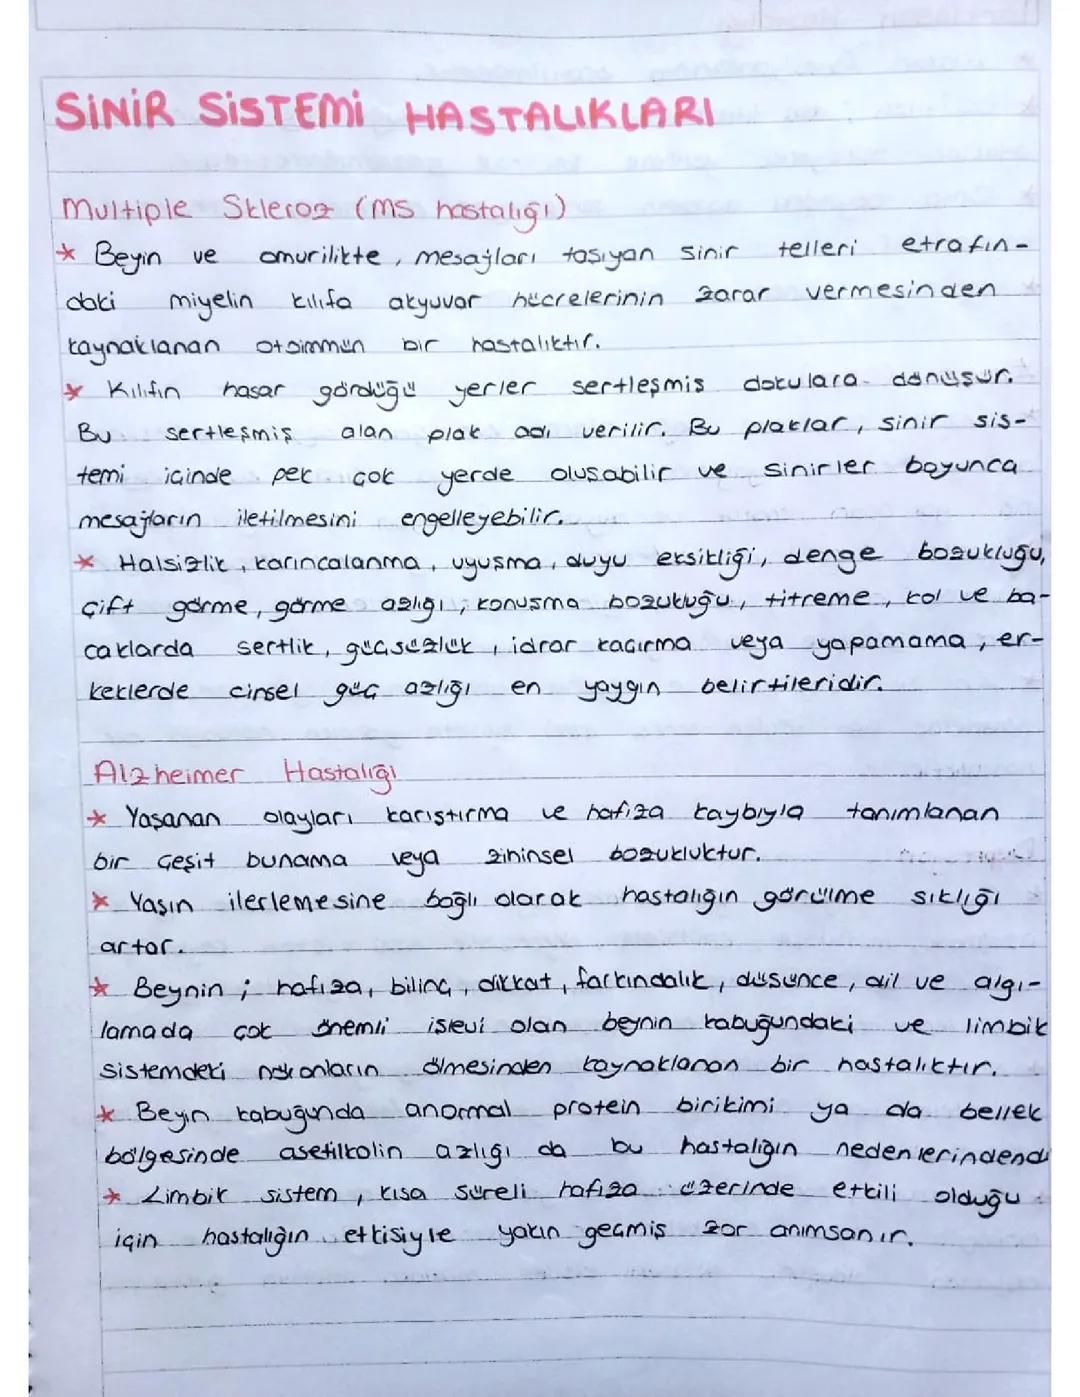 SİNİR SİSTEMİ HASTALIKLARI
Multiple Skleroz (MS hastalığı)
* Beyin ve omurilikte, mesajları taşıyan sinir telleri etrafın-
daki miyelin kılıfa akyuvar hücrelerinin zarar vermesinden
kaynaklanan otoimmün bir hastalıktır.
* Kılıfın hasar gördüğü yerler sertleşmiş dokulara dönüşür.
Bu sertleşmiş alan plak adı verilir. Bu plaklar, sinir sis-
temi içinde pek çok yerde oluşabilir ve sinirler boyunca
mesajların iletilmesini engelleyebilir.
* Halsizlik, karıncalanma, uyuşma, duyu eksikliği, denge bozukluğu,
çift görme, görme azlığı, konuşma bozukluğu, titreme, kol ve ba-
caklarda sertlik, güçsüzlük, idrar kaçırma veya yapamama, er-
keklerde cinsel güç azlığı en yaygın belirtileridir.
Alzheimer Hastalığı
* Yaşanan olayları karıştırma ve hafıza kaybıyla tanımlanan
bir çeşit bunama veya zihinsel bozukluktur.
* Yaşın ilerlemesine bağlı olarak hastalığın görülme sıklığı
artar.
* Beynin; hafıza, bilinç, dikkat, farkındalık, düşünce, dil ve algı-
lamada çok önemli işlevi olan beynin kabuğundaki ve limbik
sistemdeki nöronların ölmesinden kaynaklanan bir hastalıktır.
* Beyin kabuğunda anormal protein birikimi ya da bellek
bölgesinde asetilkolin azlığı da bu hastalığın nedenlerindendi
* Limbik sistem, kısa süreli hafıza üzerinde etkili olduğu
için hastalığın etkisiyle yakın geçmiş zor anımsanır.